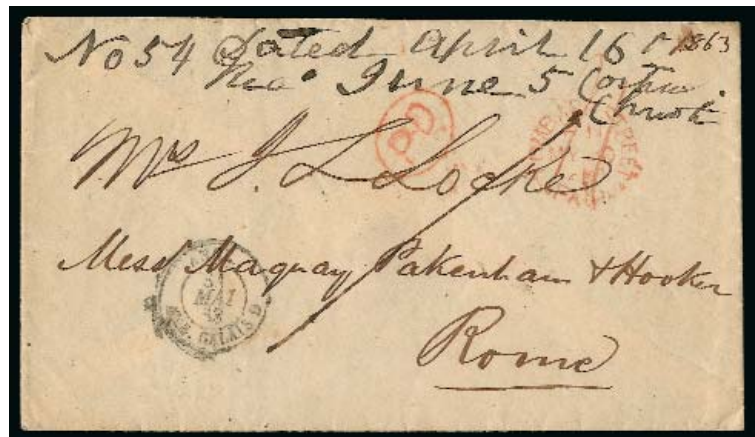 No 54 Dated April 16th 1863
Rec^d June 5
P.D
Mrs J. L Locke
Mess^rs Maquay Pakenham & Hooker
MAI
CALAIS
Rome